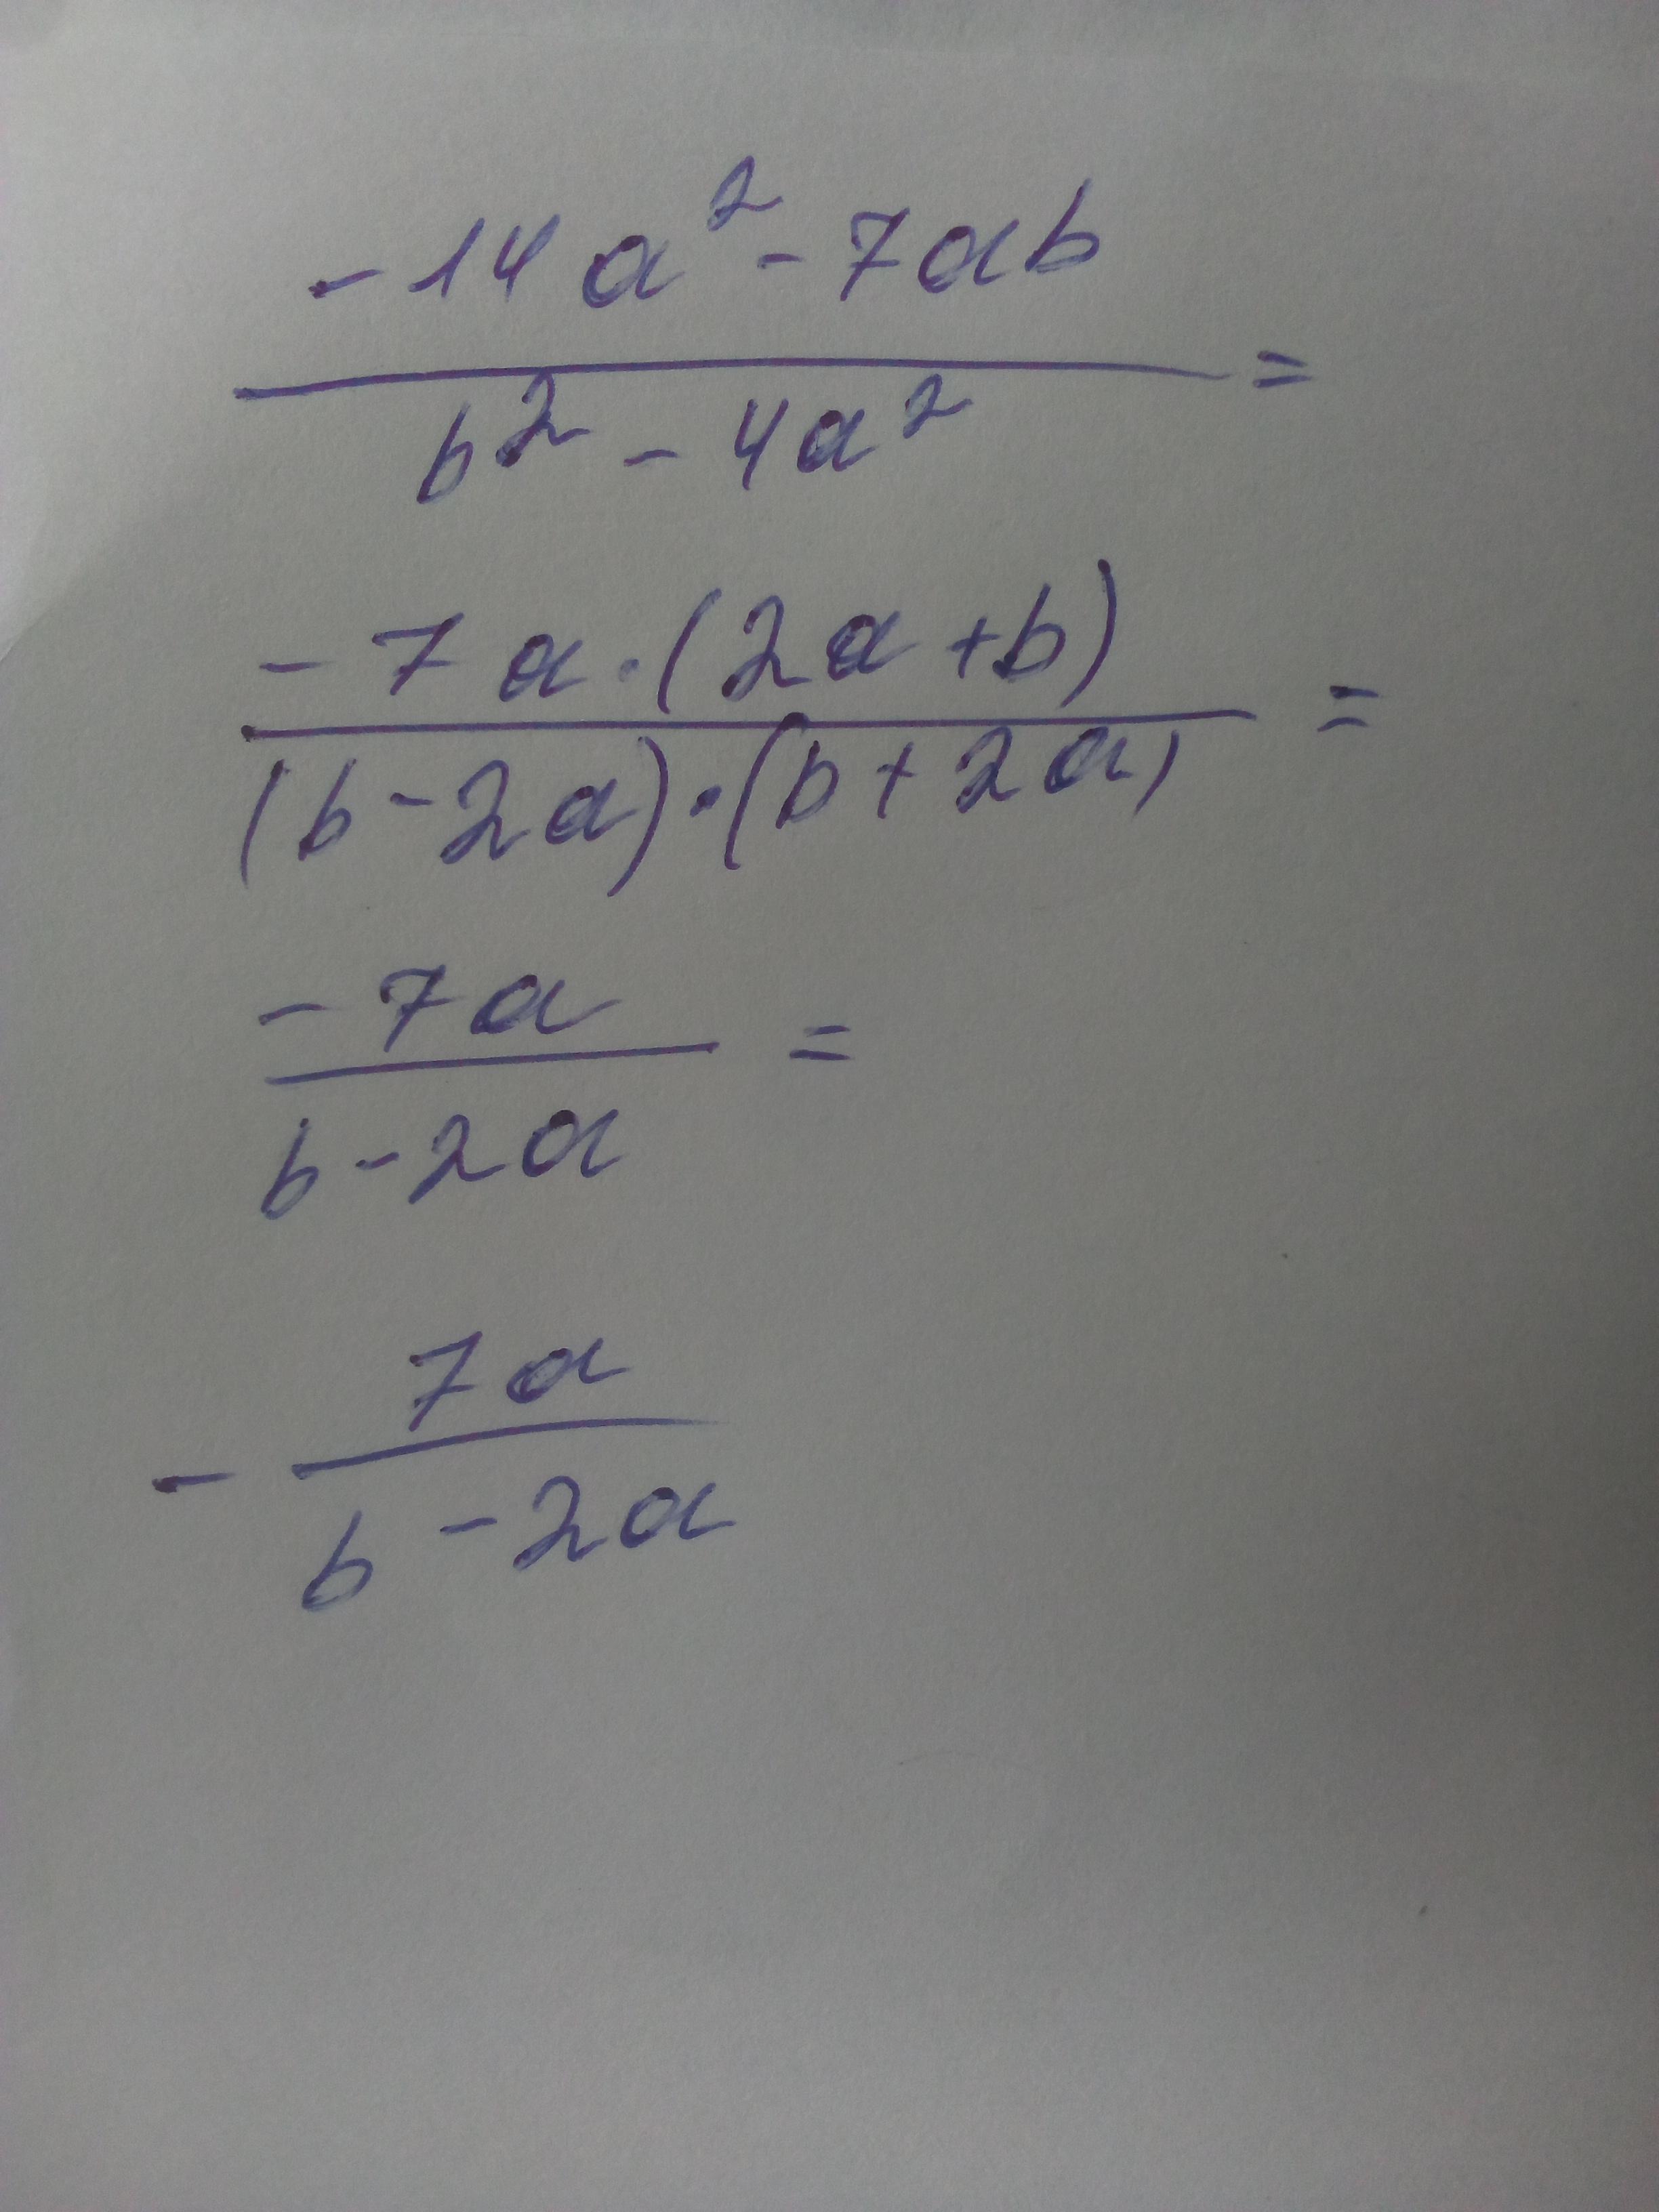 -14a² - 7ab
b² - 4a² =
-7a·(2a+b)
(b-2a)·(b+2a) =
-7a
b-2a =
7a
- b-2a